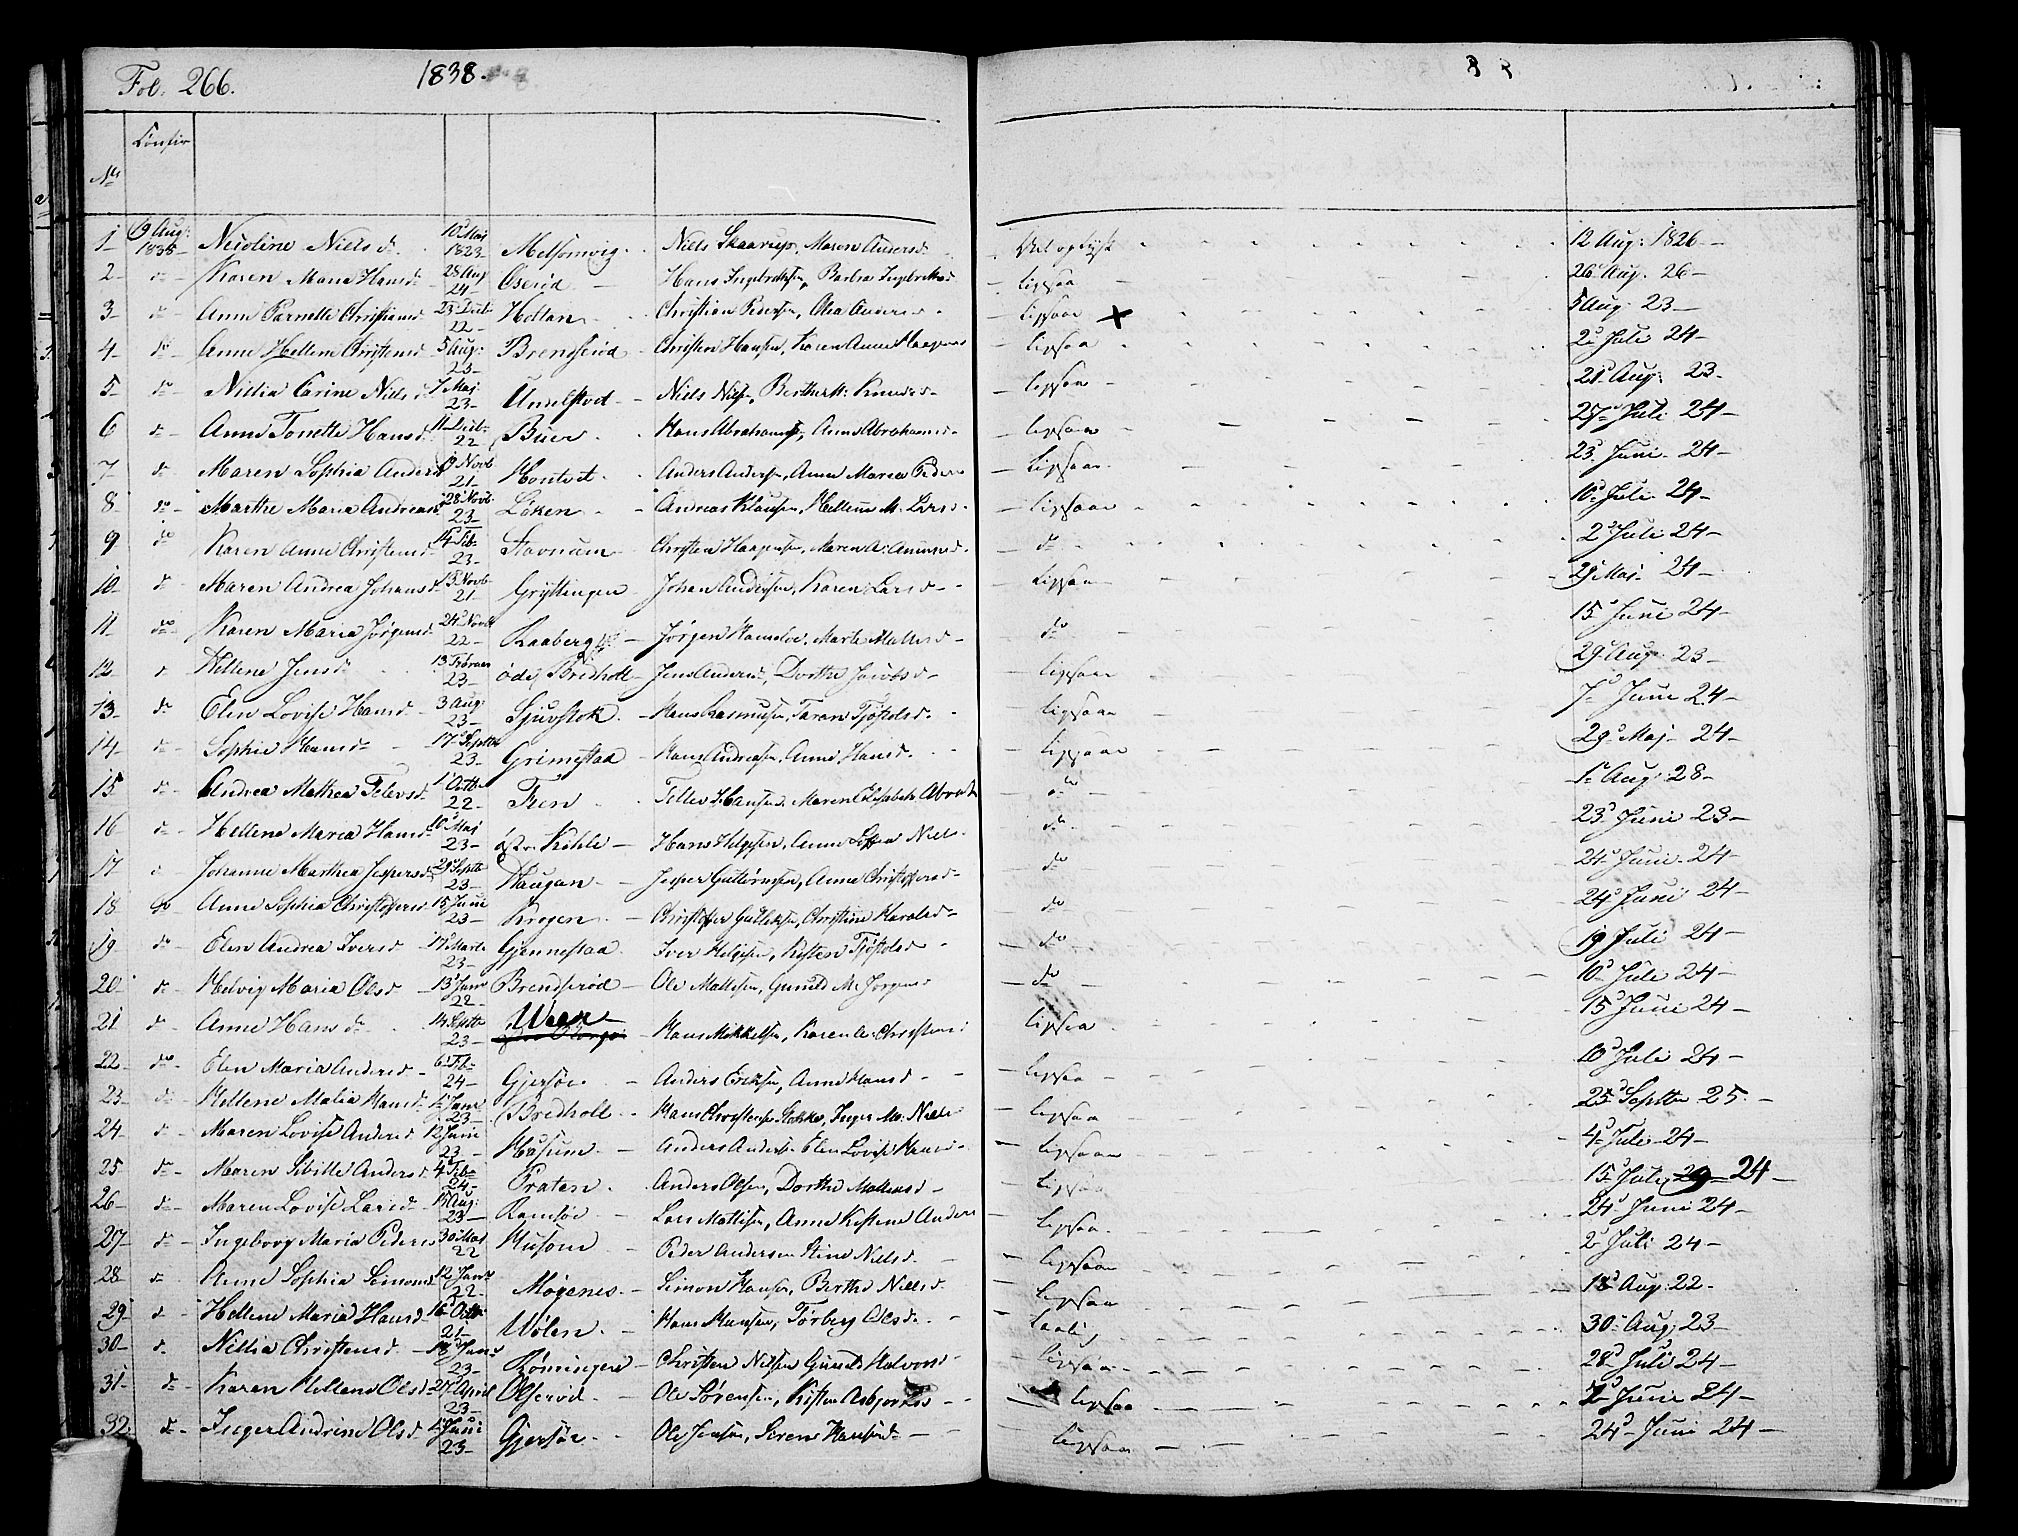 Fol. 266. 1838.
No Confir
1 19 Aug: 1838 Nicoline Nielsd. 10 Maj 1823 Melsomvig. Niels Skaarup, Maren Andersd. Vel oplyst 12 Aug: 1826
2 do Karen Maria Hansd. 28 Aug 24 Oserød Hans Ingebretsen, Barbra Ingebretsd. ligesaa 26 Aug. 26
3 do Anne Pernelle Christiansd. 23 Decb 22 Holtan Christian Pedersen, Olea Andersd. ligesaa X 5 Aug: 23
4 do Anne Hellene Christensd. 5 Aug: 23 Brendserød Christen Hansen, Karen Anne Haagensd. ligesaa 2 Juli 24
5 do Nillia Carine Nielsd. 7 Maj 23 Undelstvet Niels Niels., Berthe M: Knudsd. ligesaa 21 Aug: 23
6 do Anne Tonette Hansd. 11 Decb 22 Buer Hans Abrahams., Anne Abrahamsd. ligesaa 27 Juli 24
7 do Maren Sophia Andersd. 19 Novb 21 Hontvet Anders Anders., Anne Maria Peders ligesaa 23 Juni 24
8 do Marthe Maria Andreasd. 28 Novb. 23 Løken Andreas Klausen, Hellene M. Larsd. ligesaa 10 Juli 24
9 do Karen Anne Christensd. 14 Feb. 23 Stavnum Christen Haagensen, Maren A: Amundsd. do 2 Juli 24
10 do Maren Andrea Johansd. 13 Novb 21 Gryttingen Johan Andersen, Karen Larsd. ligesaa 29 Maj 24
11 do Karen Maria Jørgensd. 24 Novb 22 Raaberg Jørgen Hansen, Marte Mattisd. do 15 Juni 24
12 do Hellene Jensd. 13 Februar 23 øde Bredholt Jens Anders., Dorthe Jacobsd. ligesaa 29 Aug: 23
13 do Elen Lovise Hansd. 3 Aug: 23 Sjuestok Hans Rasmusen, Taran Tjøstolsd. ligesaa 7 Juni 24
14 do Sophie Hansd. 17 Septbr 23 Grimestad Hans Andreasen, Anne Hansd. ligesaa 29 Maj 24
15 do Andrea Mathea Tellevsd. 1 Octb 22 Fren Tellev Hansen, Maren Elisabeth Abrah do 1 Aug: 28
16 do Hellene Maria Hansd. 10 Maj 23 østre Kohle Hans Helgesen, Anne Sophia Niels. do 23 Juni 23
17 do Johanne Marthea Jespersd. 29 Septb 23 Haugan Jesper Guttormsen, Anne Christophersd. do 24 Juni 24
18 do Anne Sophia Christophersd. 15 Juni 23 Krogen Christopher Gulliksen, Christine Haralsd. do 24 Juni 24
19 do Elen Andrea Iversd. 17 Marts 23 Gjennestad Iver Helgesen, Kisten Tjøstolsd. do 19 Juli 24
20 do Helvig Maria Olsd. 13 Janr 22 Brendserød Ole Mattisen, Gunild M. Jørgens. do 10 Juli 24
21 do Anne Hansd. 14 Septb 23 Weer Hans Mikkelsen, Karen A: Christens. ligesaa 15 Juni 24
22 do Elen Maria Andersd. 6 Feb 24 Gjersøe Anders Eriksen, Anne Hansd. ligesaa 10 Juli 24
23 do Hellene Malia Hansd. 1 Janr 23 Bredholt Hans Christensen, Inger M: Niels ligesaa 25 Septb 25.
24 do Maren Lovise Andersd. 12 Juni 23 Haasum Anders Anders. Elen Lovise Hansd. ligesaa 4 Juli 24
25 do Maren Sibille Andersd. 4 Feb. 24 Praten Anders Olsen, Dorthe Mattisd. ligesaa 15 Juli 24
26 do Maren Lovise Larsd. 15 Aug: 23 Ramsøe Lars Mattisen, Anne Kistene Anders ligesaa 24 Juni 24
27 do Ingeborg Maria Peders 30 Maj 22 Husom Peder Andersen Stine Nielsd. ligesaa 2 Juli 24
28 do Anne Sophia Simonsd. 12 Janr 22 Mogenes Simon Hansen, Berthe Nielsd. ligesaa 18 Aug: 22
29 do Hellene Maria Hansd. 16 Octb 21 Wølen Hans Hansen, Torberg Olsd. 30 Aug: 23
30 do Nillia Christensd. 18 Janr 23 Rømminges Christen Nielsen Gunild Halvorsd. ligesaa 28 Juli 24
31 do Karen Hellene Olsd. 27 April 23 Olserød Ole Sørensen, Kisten Asbjørnsd. ligesaa 2 Juni 24
32 do Inger Andrine Olsd. Juni 23 Gjersøe Ole Jensen, Siren Hansd. ligesaa 24 Juni 24